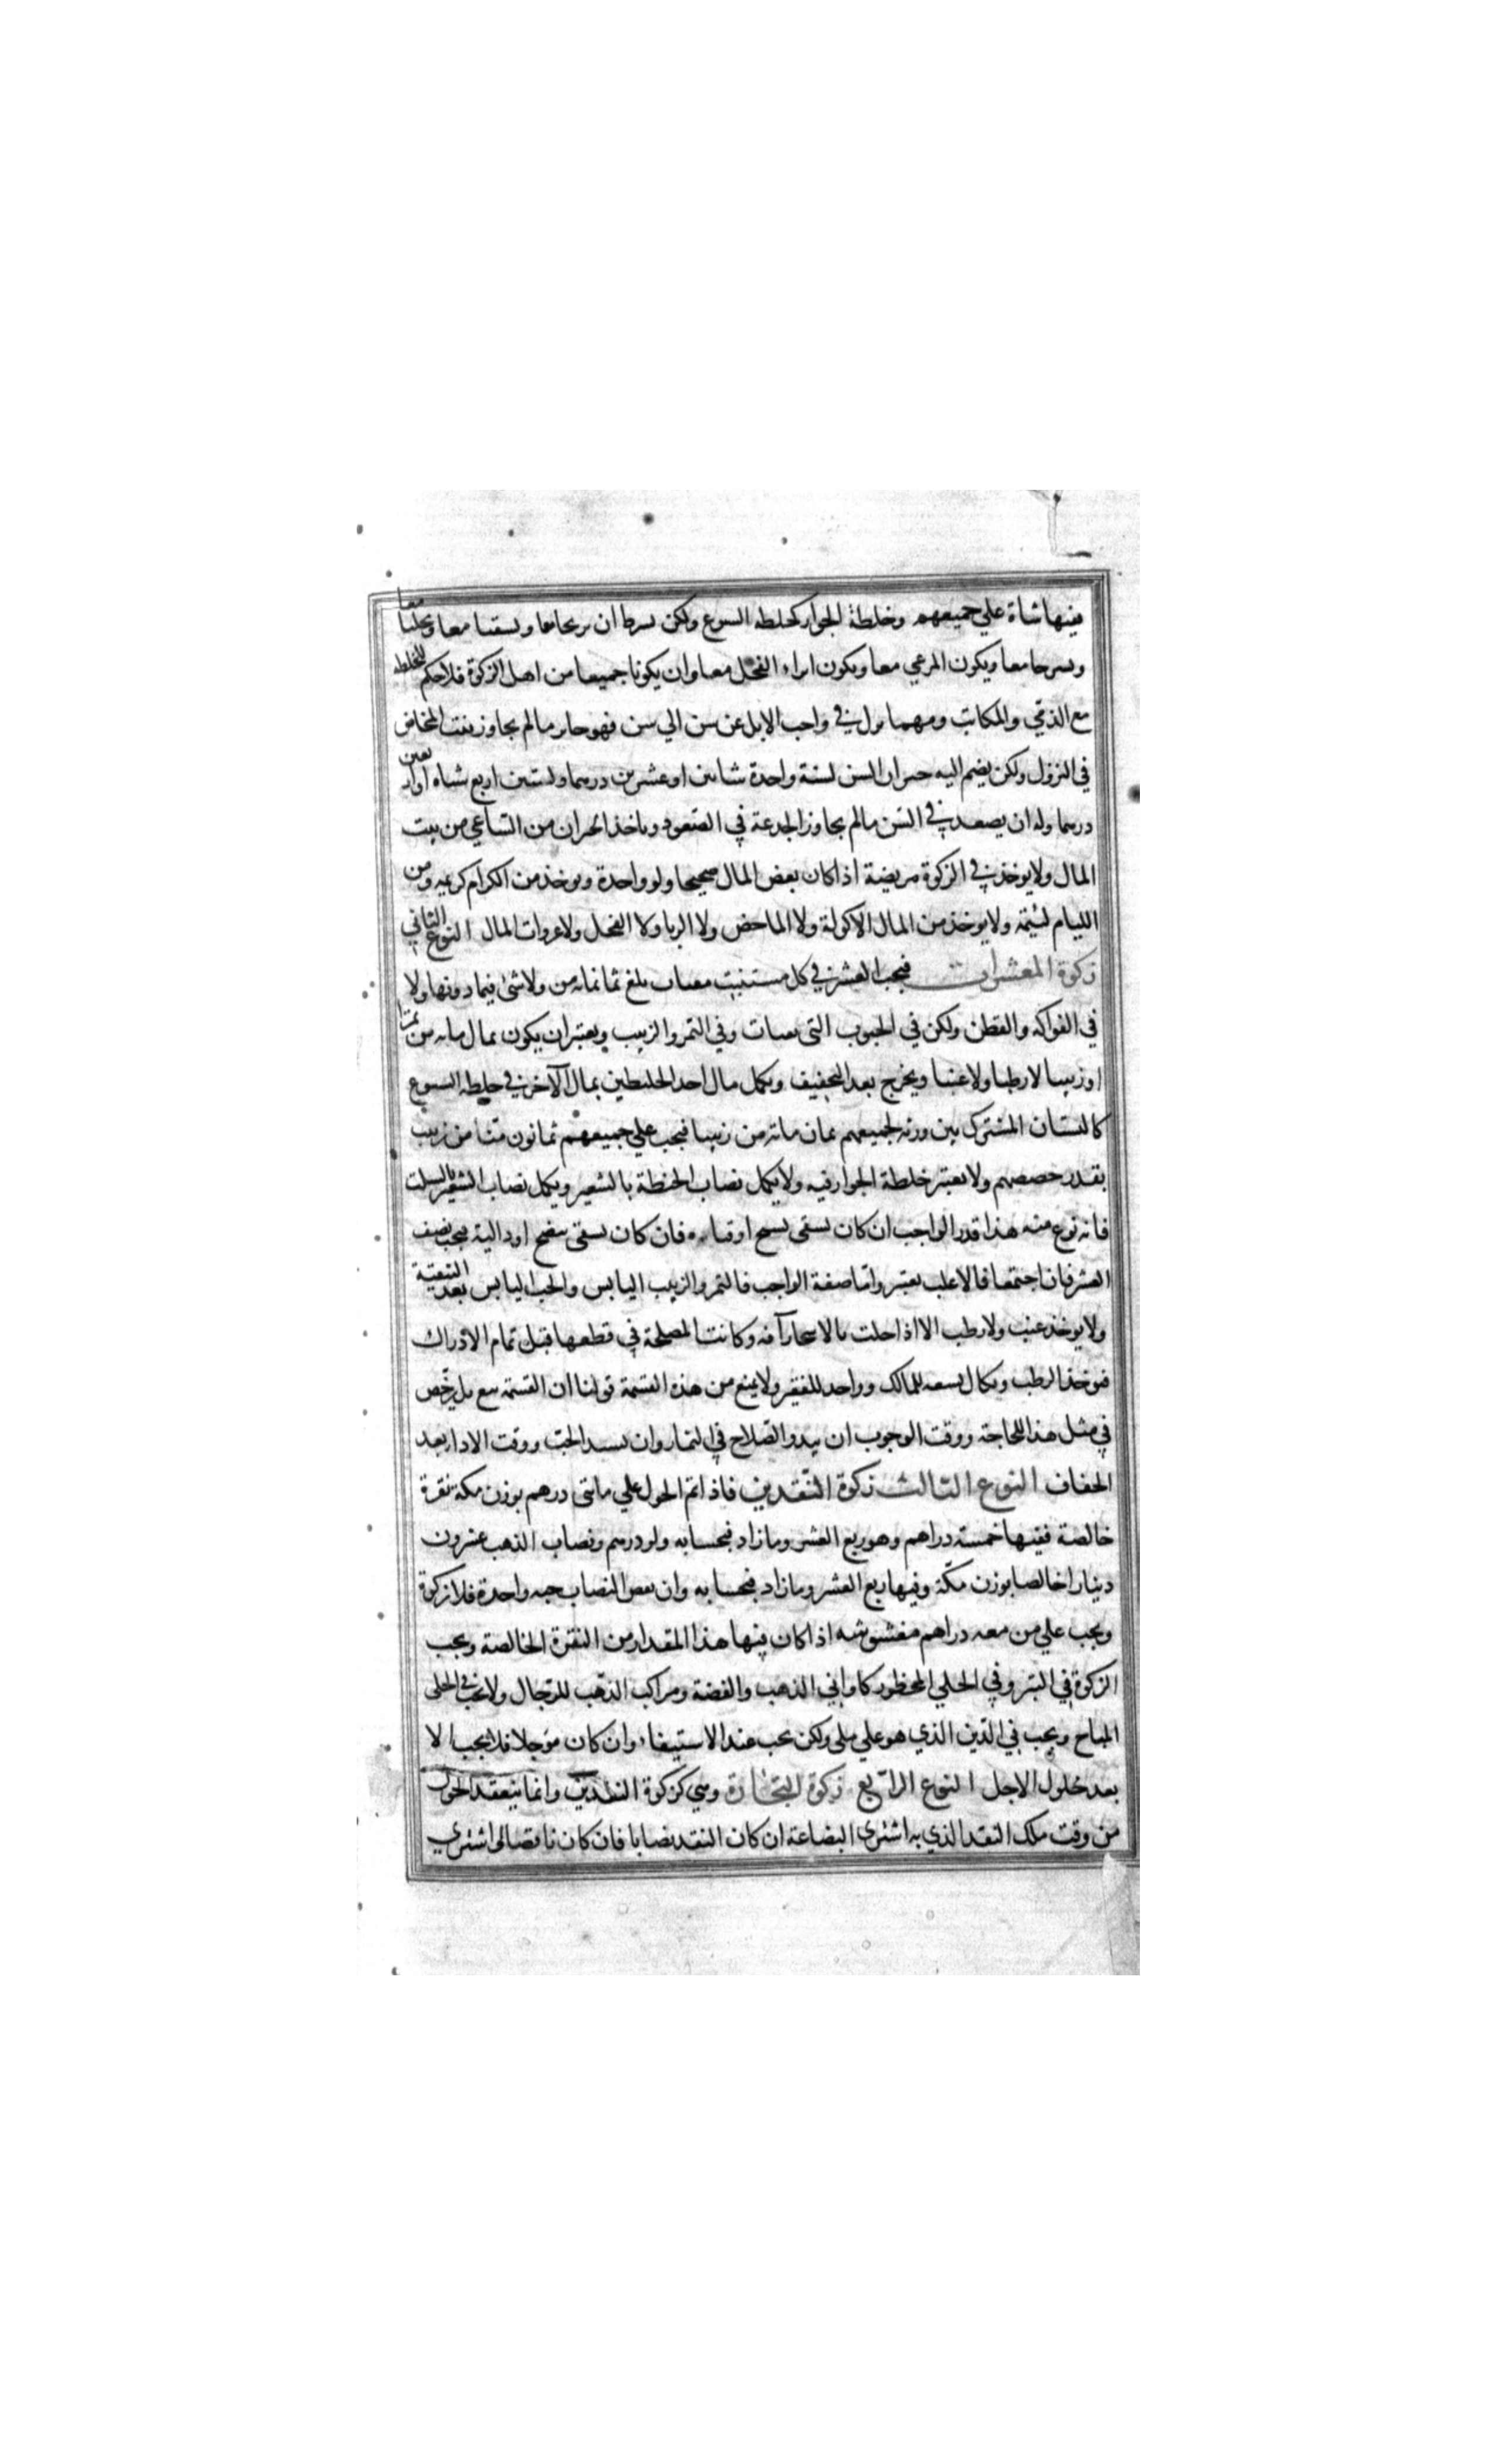 فيها شاة علي جميعهم وخلطة الجوار كخلطه السوع ولكن بسرط ان يريحا معا ويسقيا معا ويحلبا معا
ويسرحا معا ويكون المرعي معا ويكون انزاء الفحل معا وان يكونا جميعا من اهل الزكوة فلا حكم للخلطه
مع الذمي والمكاتب ومهما نزل في واجب الابل عن سن الي سن فهو جايز مالم يجاوز بنت المخاض
في النزول ولكن يضم اليه جبران السن لسنة واحدة شاتين او عشرين درهما ولسنتين اربع شياه او اربعين
درهما وله ان يصعد في السن مالم يجاوز الجدعة في الصعود وياخذ الجبران من الساعي من بيت
المال ولا يوخذ في الزكوة مريضة اذا كان بعض المال صحيحا ولو واحدة ويوخذ من الكرام كريمه ومن
الليام لئيمه ولا يوخذ من المال الاكولة ولا الماخض ولا الربا ولا الفحل ولا غروات المال النوع الثاني
زكوة المعشرات فيجب العشر في كل مستنبت مقتات بلغ ثمانمايه من ولا شئ فيما دونها ولا
في الفواكه والقطن ولكن في الحبوب التي تقتات وفي التمر والزبيب ويعتبر ان يكون ثمان مايه من تمرا
او زبيبا لا رطبا ولا عنبا ويخرج بعد التجفيف ويكمل مال احد الخليطين بمال الآخر في خلطه السوع
كالبستان المشترك بين ورثه لجميعهم ثمان مايه من زبيبا فيجب علي جميعهم ثمانون منا من زبيب
بقدر حصصهم ولا يعتبر خلطة الجوار فيه ولا يكمل نصاب الحنطة بالشعير ويكمل نصاب الشعير بالسلت
فانه نوع منه هذا قدر الواجب ان كان يسقي بسيح او قناه فان كان يسقي بنضح او دالية فيجب نصف
العشر فان اجتمعا فالاغلب يعتبر واما صفة الواجب فالتمر والزبيب اليابس والحب اليابس بعد التنقية
ولا يوخذ عنب ولا رطب الا اذا حلت بالاشجار آفه وكانت المصلحة في قطعها قبل تمام الادراك
فيوخذ الرطب ويكال تسعه للمالك وواحد للفقير ولا يمنع من هذه القسمة قولنا ان القسمة بيع بل يرخص
في مثل هذا للحاجة ووقت الوجوب ان يبدو الصلاح في الثمار وان يشتد الحب ووقت الادا بعد
الجفاف النوع الثالث زكوة النقدين فاذا تم الحول علي مايتي درهم بوزن مكة نقرة
خالصة ففيها خمسة دراهم وهو ربع العشر وما زاد فبحسابه ولو درهم ونصاب الذهب عشرون
دينارا خالصا بوزن مكة وفيها ربع العشر وما زاد فبحسابه وان نقص النصاب حبه واحدة فلا زكوة
ويجب علي من معه دراهم مغشوشه اذا كان فيها هذا المقدار من النقرة الخالصة ويجب
الزكوة في التبر وفي الحلي المحظور كاواني الذهب والفضة ومراكب الذهب للرجال ولا يجب في الحلي
المباح ويجب في الدين الذي هو علي ملي ولكن يجب عند الاستيفاء وان كان موجلا فلا يجب الا
بعد حلول الاجل النوع الرابع زكوة التجارة وهي كزكوة النقدين وانما ينعقد الحول
من وقت ملك النقد الذي به اشتري البضاعة ان كان النقد نصابا فان كان ناقصا او اشتري